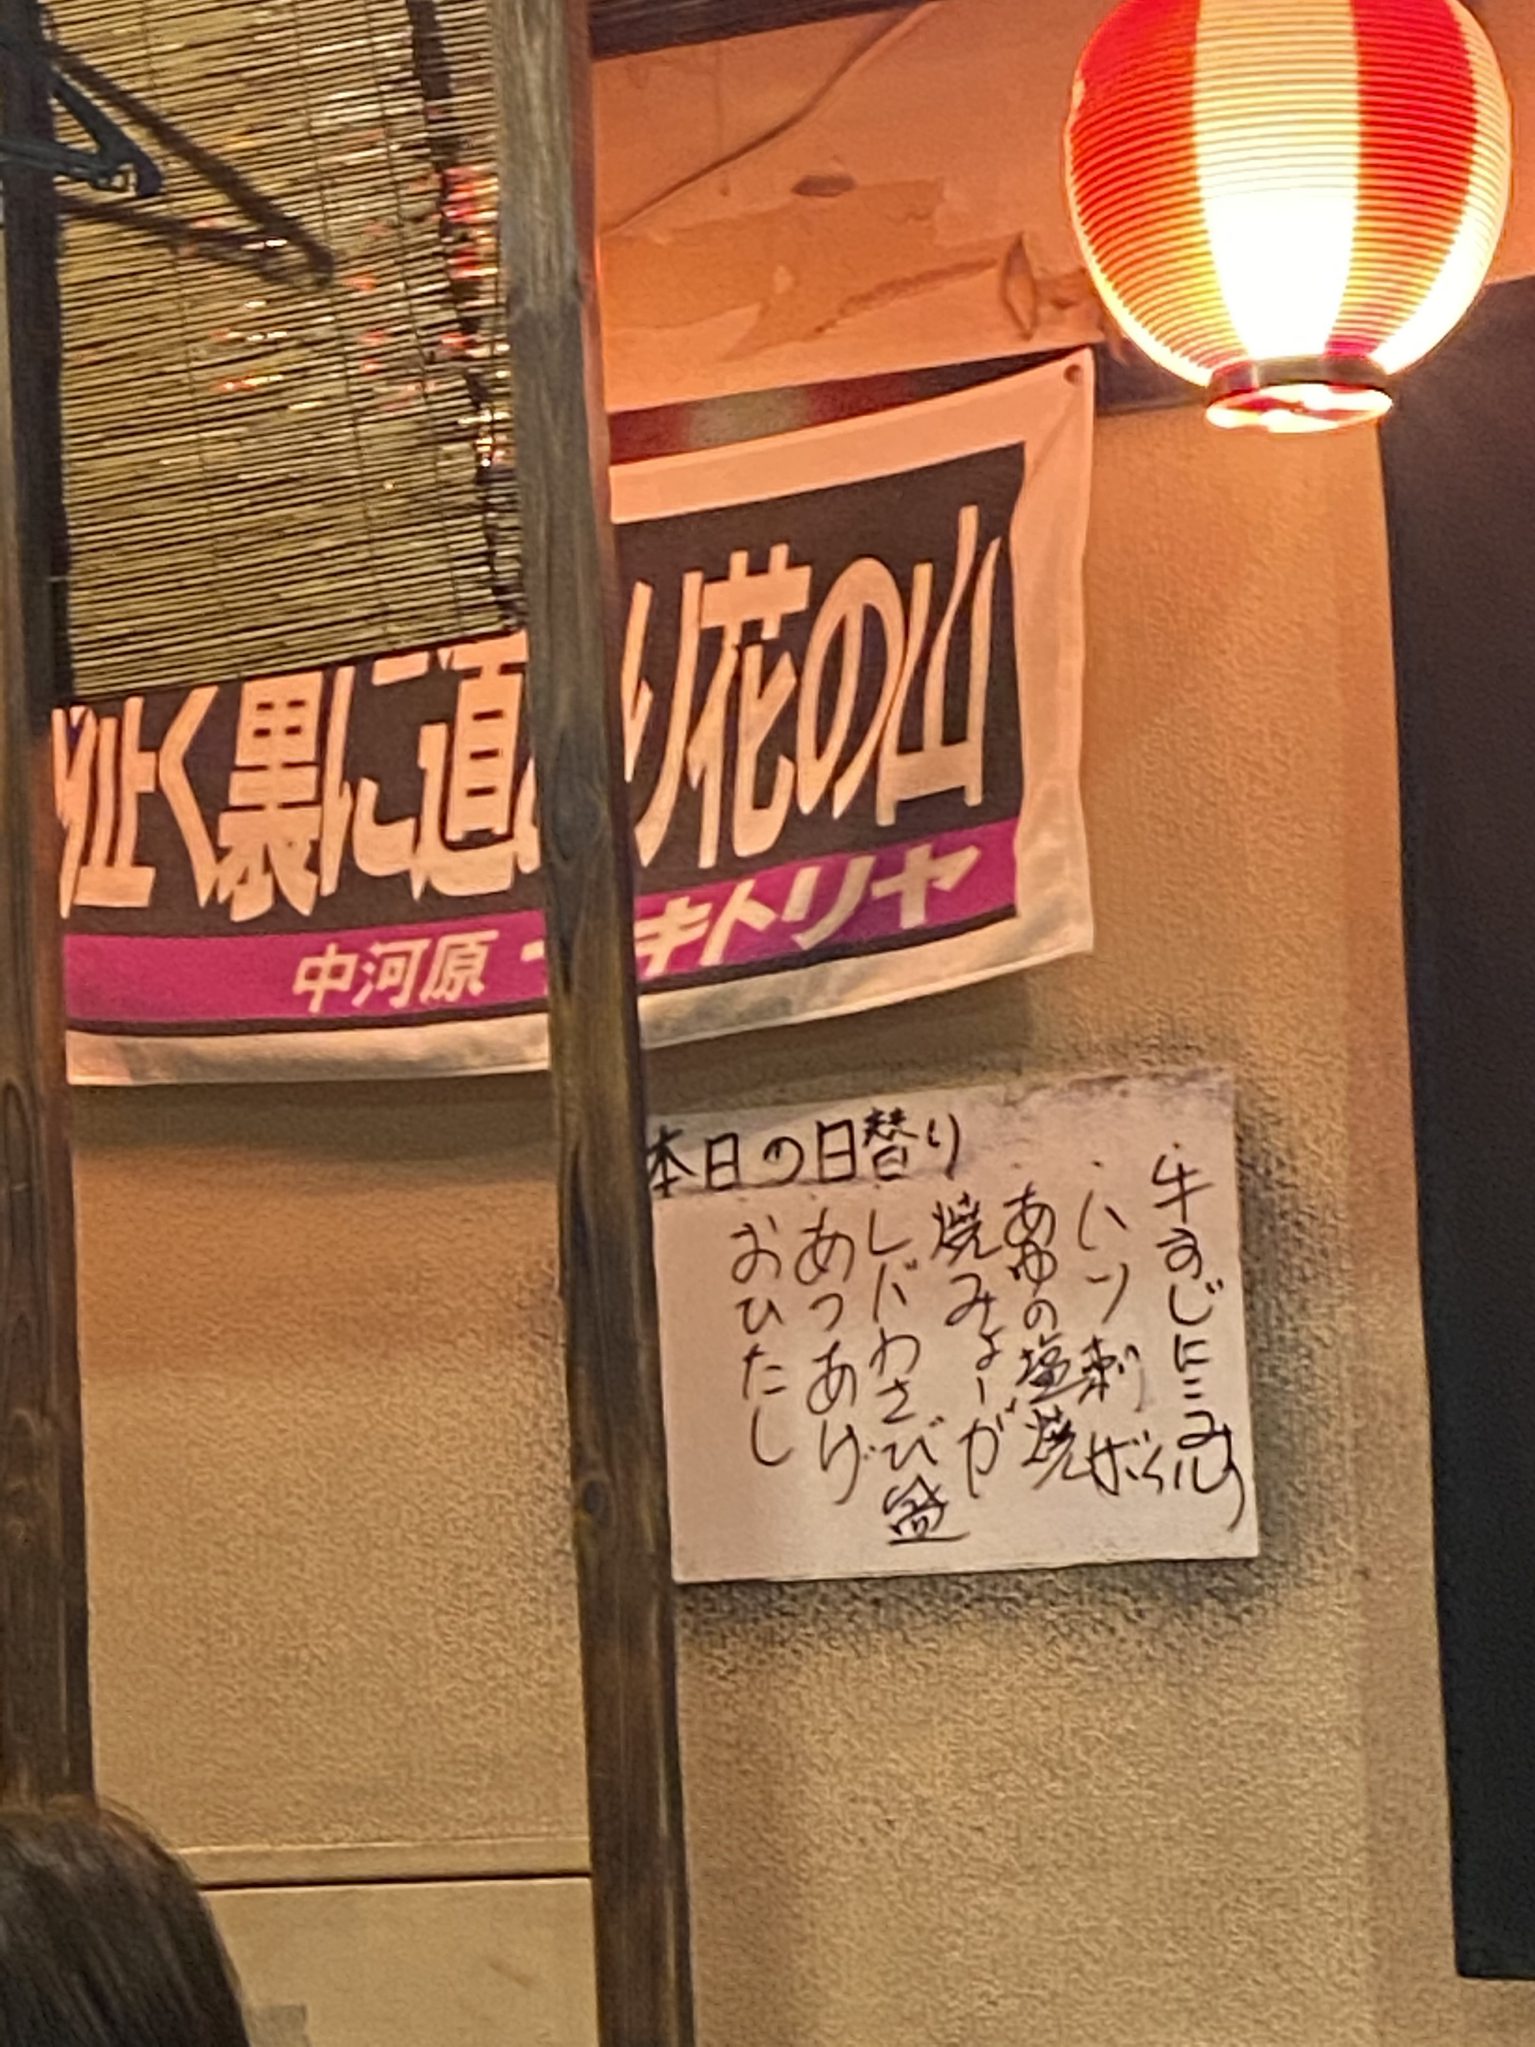 往く裏に道あり花の山
中河原 ヤキトリヤ
本日の日替り
・牛すじにこみ
・ハツ刺 ボイル
・あゆの塩焼
・焼みょーが
・レバわさび盛
・あつあげ
・おひたし